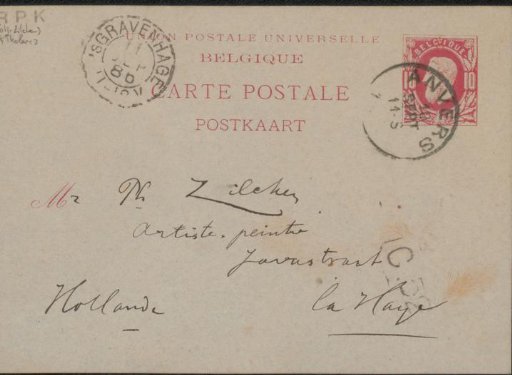 RPK
'SGRAVENHAGE
UNION POSTALE UNIVERSELLE
BELGIQUE
CARTE POSTALE
POSTKAART
BELGIQUE
10
ANVERS
Mr Ph Zilcken
Artiste-peintre
Javastraat
Hollande la Haye